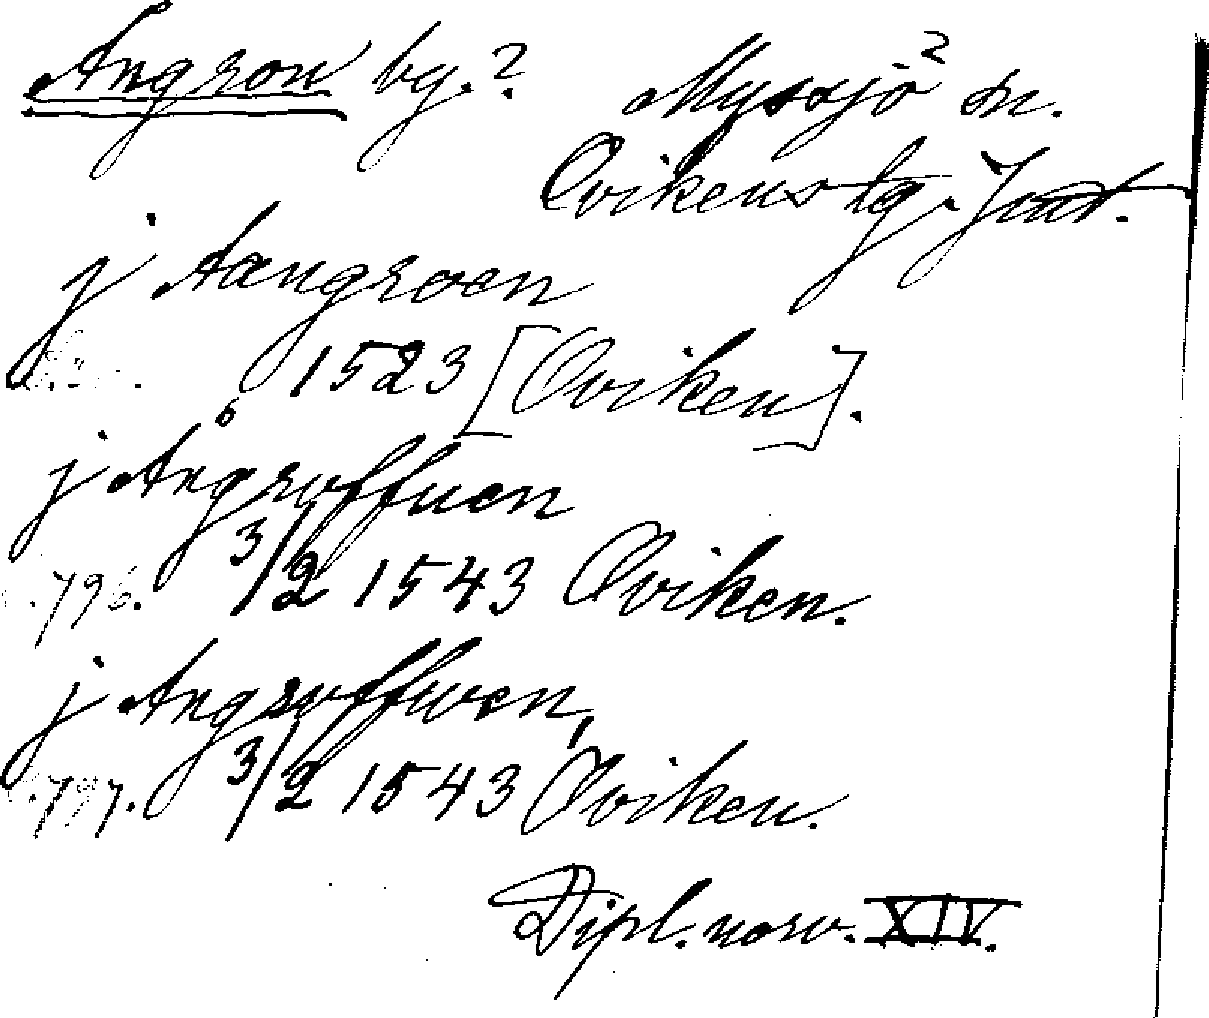 Angron by.? Myssjö? sn.
Ovikens tg. Jmt.
j Aangroen
1523 [Oviken].
j Ångroffuen
796. 3/2 1543 Oviken.
j Angroffwen,
797. 3/2 1543 Oviken.
Dipl. norv. XIV.